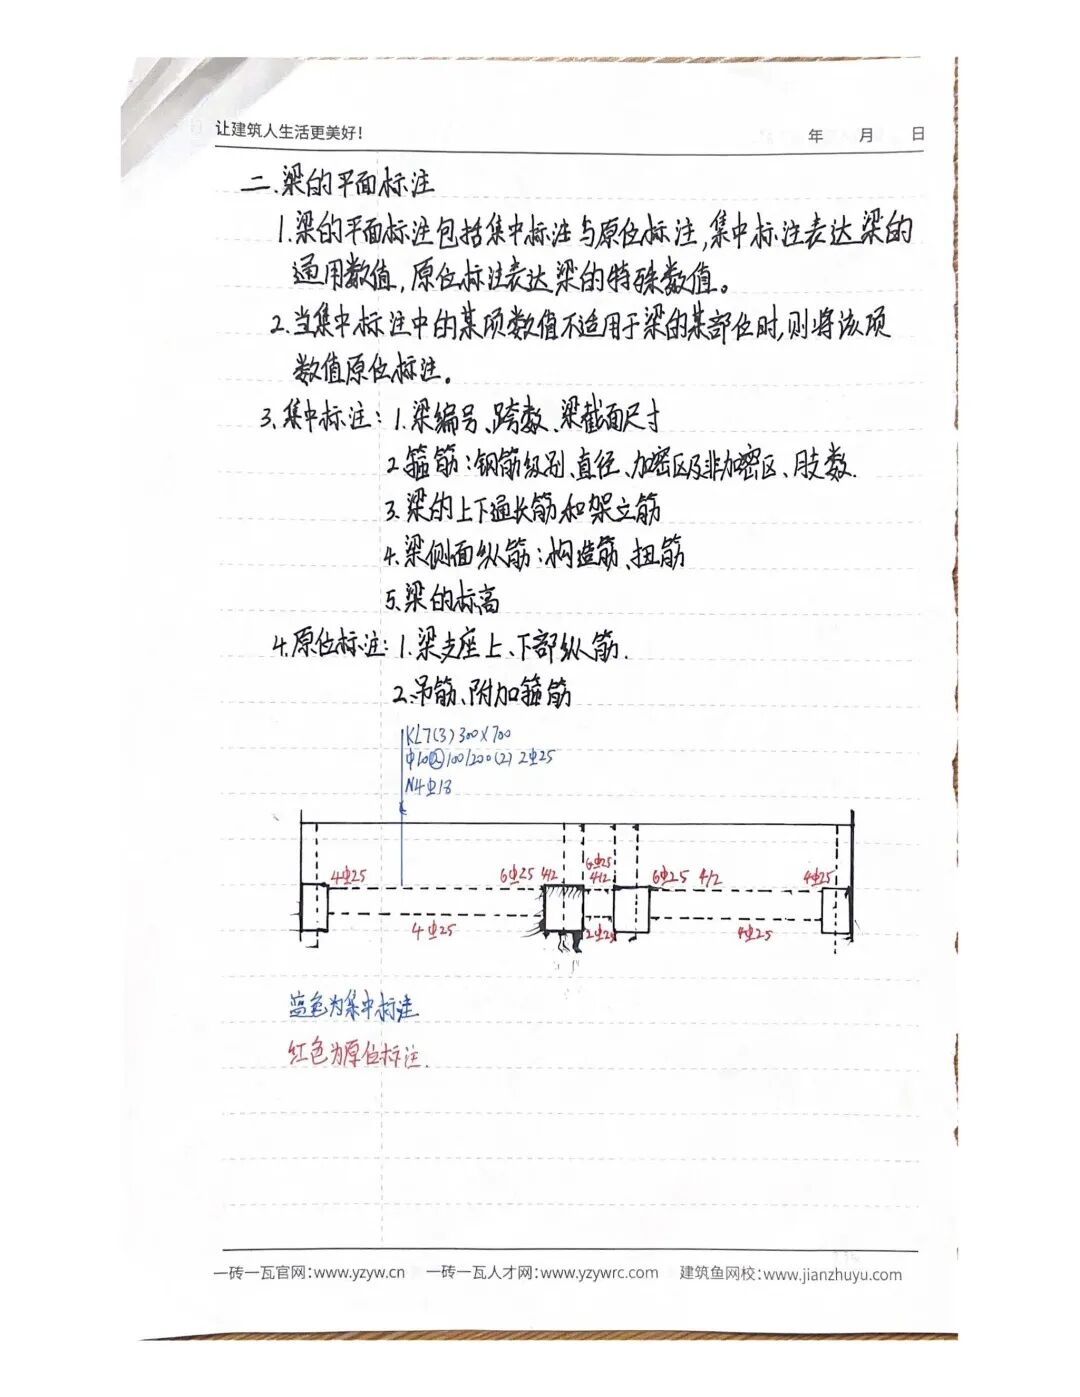 让建筑人生活更美好!
年 月 日
二.梁的平面标注
1.梁的平面标注包括集中标注与原位标注,集中标注表达梁的
通用数值,原位标注表达梁的特殊数值。
2.当集中标注中的某项数值不适用于梁的某部位时,则将该项
数值原位标注。
3.集中标注:1.梁编号、跨数、梁截面尺寸
2.箍筋:钢筋级别、直径、加密区及非加密区、肢数.
3.梁的上下通长筋和架立筋
4.梁侧面纵筋:构造筋、扭筋
5.梁的标高
4.原位标注:1.梁支座上、下部纵筋.
2.吊筋、附加箍筋
KL7(3)300×700
Φ10@100/200(2) 2Φ25
N4Φ18
6Φ25
4Φ25 6Φ25 4/2 4/2 6Φ25 4/2 4Φ25
4Φ25 2Φ25 4Φ25
蓝色为集中标注
红色为原位标注.
一砖一瓦官网:www.yzyw.cn 一砖一瓦人才网:www.yzywrc.com 建筑鱼网校:www.jianzhuyu.com